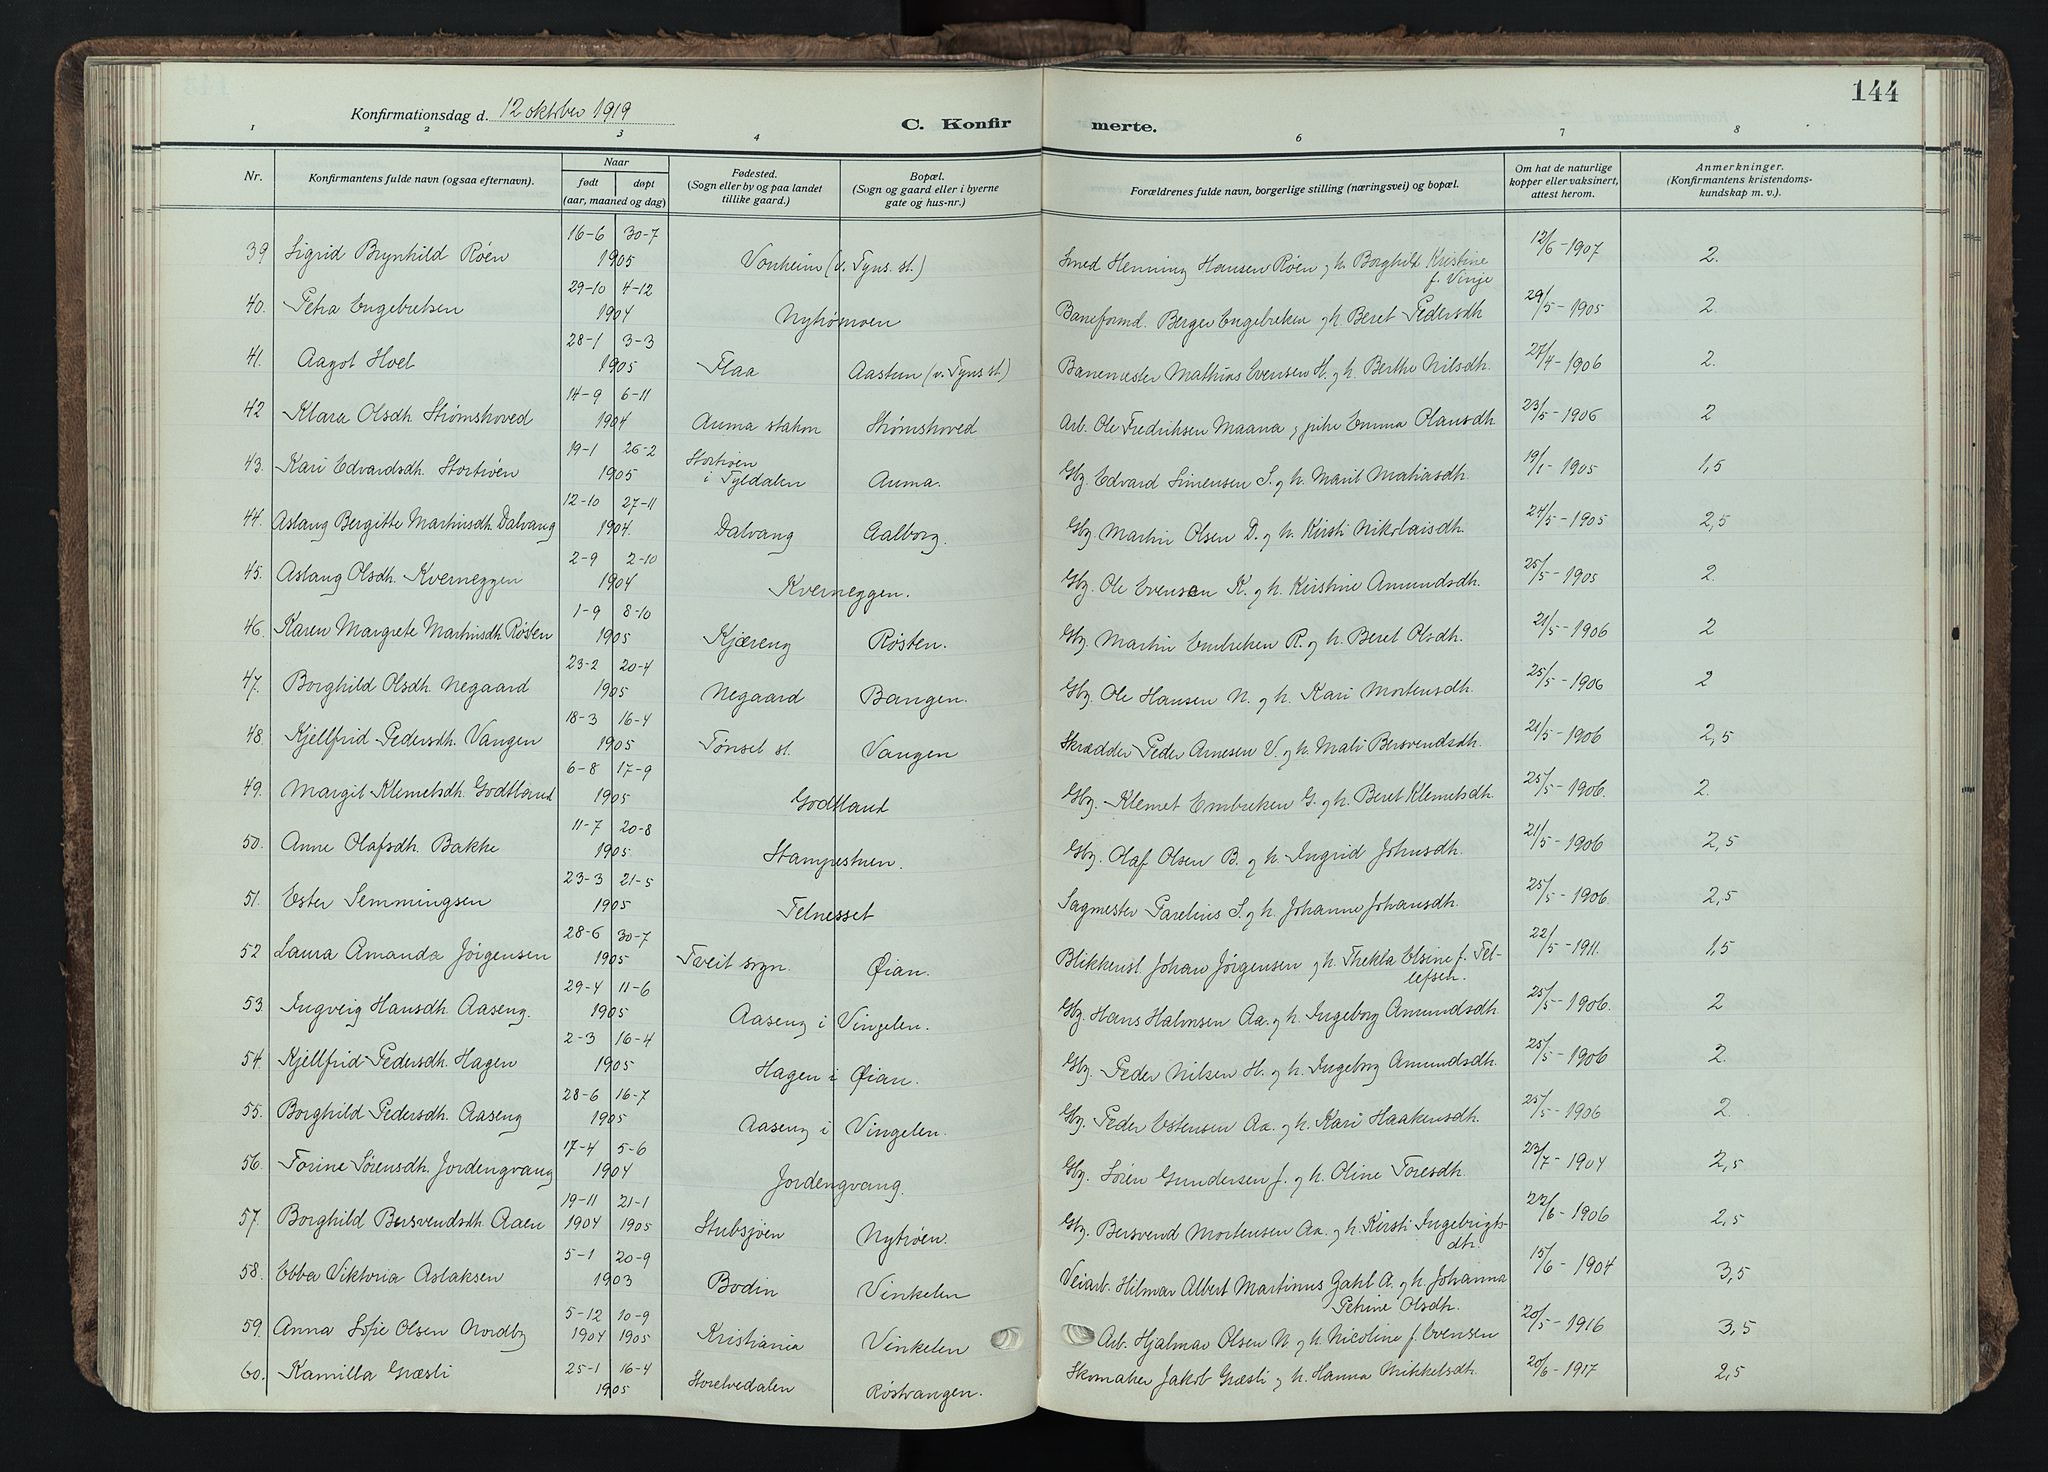 144
Konfirmationsdag d. 12 oktober 1919
C. Konfirmerte.
1 2 3 4 5 6 7 8
Nr. Konfirmantens fulde navn (ogsaa efternavn). Naar født døpt (aar, maaned og dag) Fødested. (Sogn eller by og paa landet tillike gaard.) Bopæl. (Sogn og gaard eller i byerne gate og hus-nr.) Forældrenes fulde navn, borgerlige stilling (næringsvei) og bopæl. Om hat de naturlige kopper eller vaksinert, attest herom. Anmerkninger. (Konfirmantens kristendomskundskap m. v.).
39 Sigrid Brynhild Røen 16-6 30-7 1905 Vonheim (v. Tyns. st.) Smed Henning Hansen Røen og h. Borghild Kristine f. Vinje 12/6-1907 2.
40. Petra Engebretsen 29-10 4-12 1904 Nytrømoen Baneformd. Berger Engebretsen og h. Beret Pedersdh 29/5-1905 2.
41. Aagot Hoel 28-1 3-3 1905 Flaa Aastun (v. Tyns st) Banemester Mathias Evensen H. og h. Berthe Nilsdh. 27/4-1906 2.
42 Klara Olsdh. Strømshoved 14-9 6-11 1904 Auma station Strømshoved Arb. Ole Fredriksen Maana og pike Emma Olausdh 23/5-1906 2
43. Kari Edvardsdh. Stortrøen 19-1 26-2 1905 Stortrøen i Tyldalen Auma. Gbr. Edvard Simensen S. og h. Marit Matiasdh. 19/1-1905 1,5
44. Aslaug Bergitte Martinsdh. Dalvang 12-10 27-11 1904. Dalvang Aalborg. Gbr. Martin Olsen D. og h. Kirsti Nikolaisdh. 24/5-1905 2,5
45. Aslaug Olsdh. Kverneggen 2-9 2-10 1904 Kverneggen. Gbr. Ole Evensen K. og h. Kirstine Amundsdh. 25/5-1905 2.
46. Karen Margrete Martinsdh. Røsten 1-9 8-10 1905 Kjæreng Røsten. Gbr. Martin Embretsen R. og h. Beret Olsdh. 21/5-1906 2
47. Borghild Olsdh. Negaard 23-2 20-4 1905 Negaard Bangen. Gbr. Ole Hansen N. og h. Kari Mortensdh. 25/5-1906 2
48. Kjellfrid Pedersdh. Vangen 18-3 16-4 1905 Tønset st. Vangen Skrædder Peder Arnesen V. og h. Mali Bersvendsdh. 21/5-1906 2,5
49. Margit Klemetsdh. Godtland 6-8 17-9 1905 Godtland Gbr. Klemet Embretsen G. og h. Beret Klemetsdh. 25/5-1906. 2.
50. Anne Olafsdh. Bakke 11-7 20-8 1905. Stampestuen. Gbr. Olaf Olsen B. og h. Ingrid Johnsdh. 21/5-1906 2,5
51. Ester Semmingsen 23-3 21-5 1905 Telnesset Sagmester Parelius S. og h. Johanne Johansdh. 25/5-1906. 2,5
52 Laura Amanda Jørgensen 28-6 30-7 1905 Tveit sogn. Øian. Blikkensl. Johan Jørgensen og h. Thekla Elsine f. Tellefsen. 22/5-1911. 1,5
53. Ingveig Hansdh. Aaseng. 29-4 11-6 1905 Aaseng i Vingelen. Gbr Hans Halvorsen Aa. og h. Ingeborg Amundsdh. 25/5-1906. 2
54. Kjellfrid Pedersdh. Hagen 2-3 16-4 1905 Hagen i Øian. Gbr. Peder Nilsen H. og h. Ingeborg Amundsdh. 25/5-1906 2.
55. Borghild Pedersdh. Aaseng 28-6 16-7 1905 Aaseng i Vingelen. Gbr. Peder Estensen Aa. og h. Kari Haakensdh. 25/5-1906 2.
56. Torine Sørensdh. Jordengvang 17-4 5-6 1904 Jordengvang. Gbr. Søren Gundersen J. og h. Oline Toresdh. 23/7-1904 2,5
57. Borghild Bersvendsdh. Aaen 19-11 1904 21-1 1905 Stubsjøen Nytrøen. Gbr. Bersvend Mortensen Aa. og h. Kirsti Ingebrigtsdh. 22/6-1906 2,5
58. Ebba Viktoria Aslaksen 5-1 20-9 1903 Bodin Vinkelen Veiarb. Hilmar Albert Martinus Zahl A. og h. Johanna Petrine Olsdh. 15/6-1904 3,5
59. Anna Sofie Olsen Nordby 5-12 1904 10-9 1905 Kristiania Vinkelen Arb. Hjalmar Olsen N. og h. Nicoline f. Evensen 20/5-1916 3,5
60. Kamilla Græsli 25-1 16-4 1905 Storelvedalen Røstvangen. Skomaker Jakob Græsli og h. Hanna Mikkelsdh. 20/6-1917 2,5